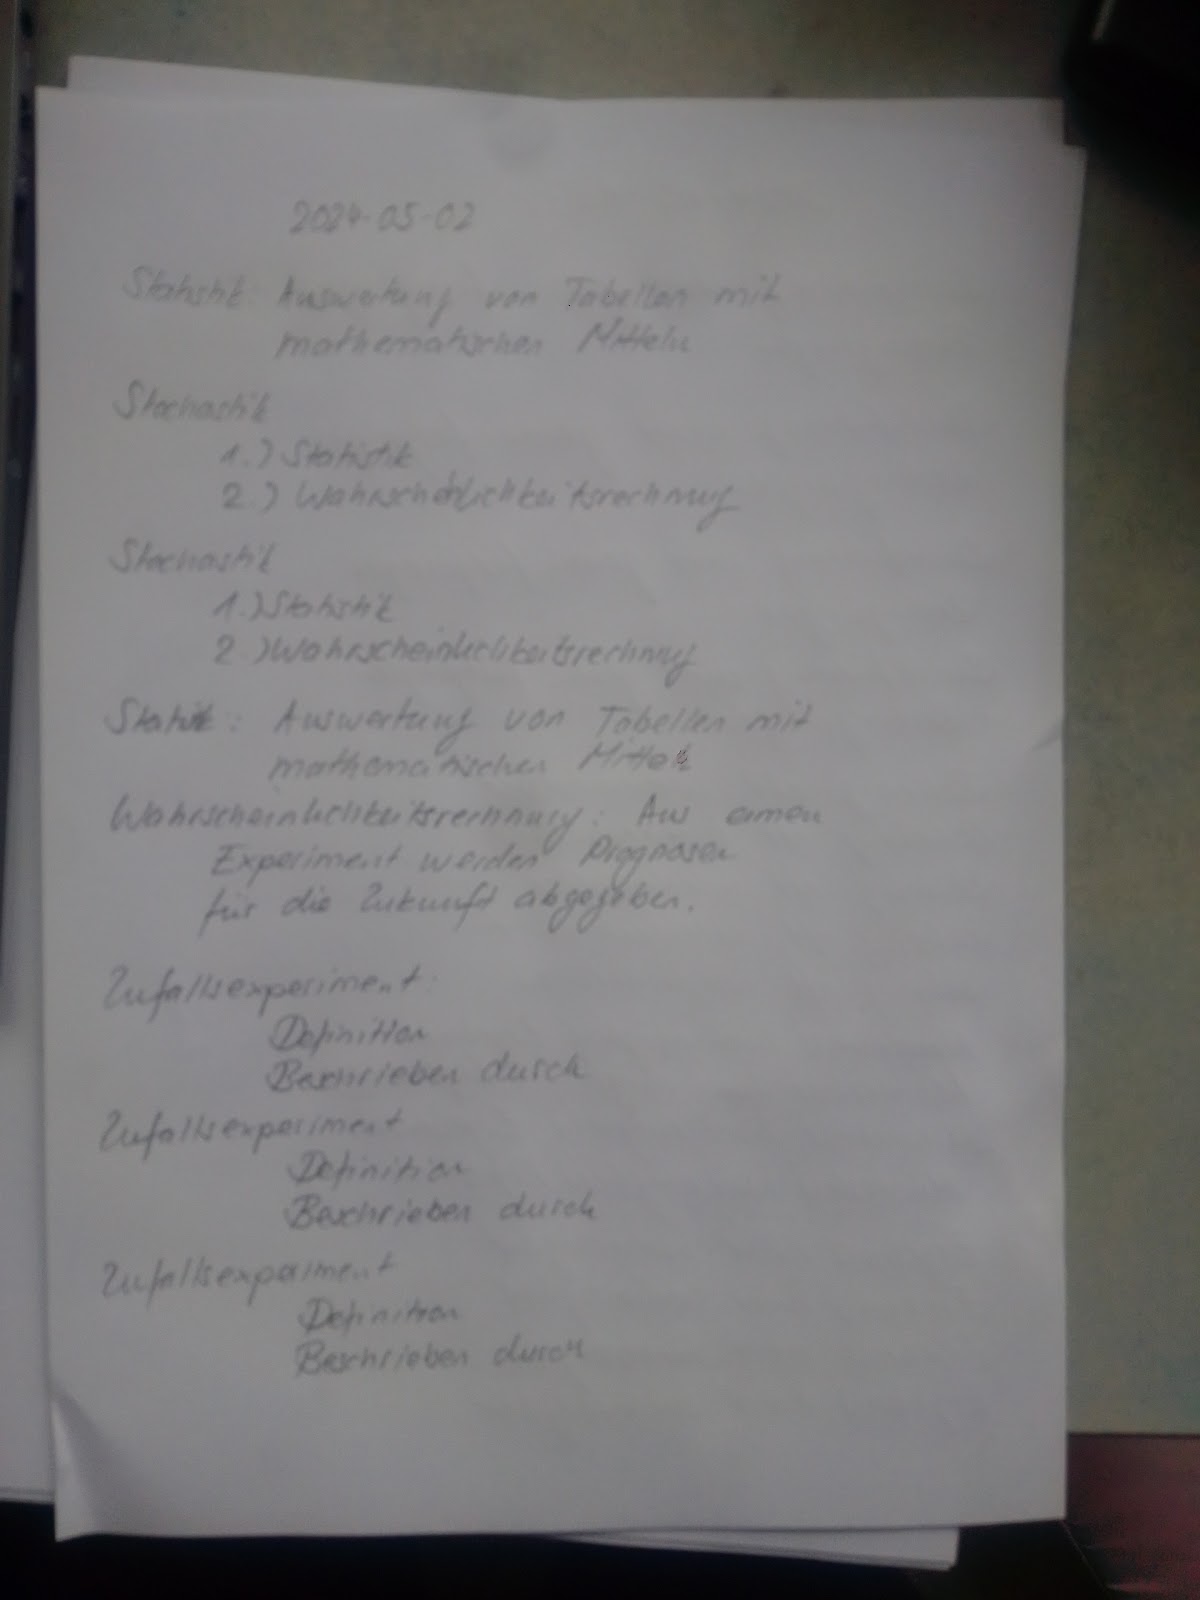 2024-05-02
Statistik Auswertung von Tabellen mit
mathematischen Mitteln
Stochastik
1.) Statistik
2.) Wahrscheinlichkeitsrechnung
Stochastik
1.) Statistik
2.) Wahrscheinlichkeitsrechnung
Statistik: Auswertung von Tabellen mit
mathematischen Mitteln
Wahrscheinlichkeitsrechnung: Aus einem
Experiment werden Prognosen
für die Zukunft abgegeben.
Zufallsexperiment:
Definition
Beschrieben durch
Zufallsexperiment
Definition
Beschrieben durch
Zufallsexperiment
Definition
Beschrieben durch